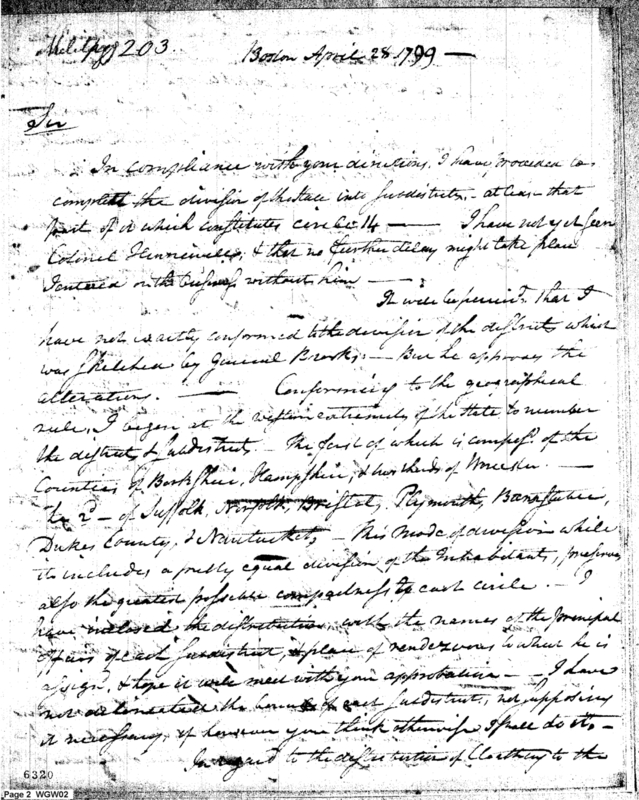 203.
Boston April 28. 1799 —
Sir
In compliance with your directions. I have proceeded to
complett the division of the state into subdistricts, - at leas - that
part of it which constitutes circle 14 — I have not yet seen
Colonel & that no further delay might take place
I entered on the business without him —
It will be perceivd. that I
have not exactly conformed to the division of the districts which
was sketched by General Brooks. — But he approves the
alterations. — Conforming to the geographical
rule, I began at the western extremity of the State to number
the districts & subdistricts - The first of which is composd. of the
Counties of Berkshire, Hampshire, & two thirds of Worcester. —
The 2d - of Suffolk Norfolk, Bristol, Plymouth, Barnstable,
Dukes County, & Nantucket, - This mode of division while
it includes a pretty equal division of the Inhabitants, preserves
also the greatest possible compactness to each circle. - I
have inclosed the distribution, with the names of the principal
of each subdistrict, & place of rendezvous to which he is
assign'd, & hope it will meet with your approbation - I have
not delineated the bounds of each subdistrict, not supposing
it necessary, if however you think otherwise I shall do it. -
In regard to the distribution of Cloathing to the
6320
Page 2 WGW02